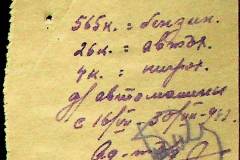 565к. = бензин.
26к. = автол.
4к. = нигрол.
д/автомашины
с 16/VII - 30/VII-47г.